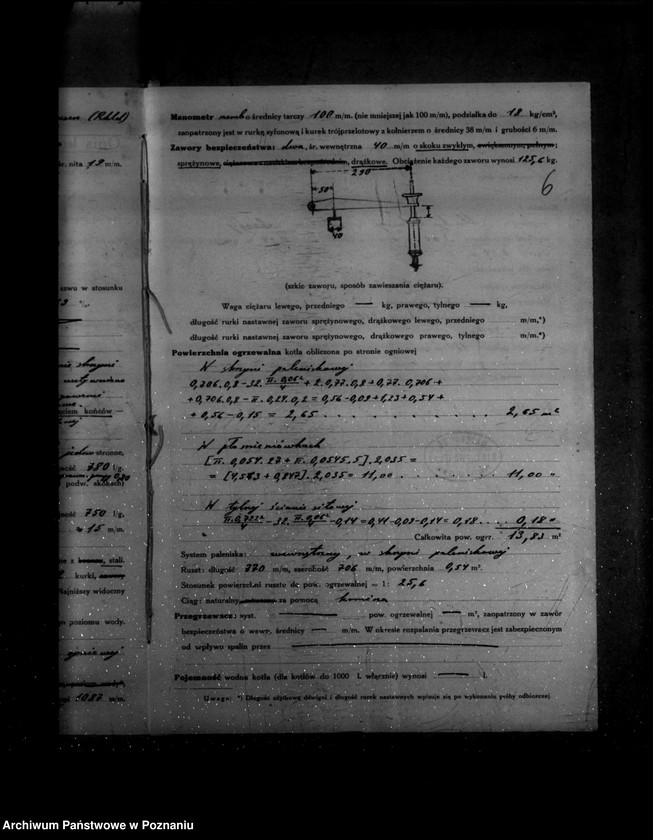 usen (Rhld)
śr. nita 12 m/m.
szwu w stosunku
stronne,
ność 780 l/g,
podw. skokach)
ność 750 l/g,
15 m/m.
stali.
kurki,
Najniższy widoczny
poziomu wody.
1087 m/m.
Manometr memb o średnicy tarczy 100 m/m. (nie mniejszej jak 100 m/m), podziałka do 18 kg/cm²,
zaopatrzony jest w rurkę syfonową i kurek trójprzelotowy z kołnierzem o średnicy 38 m/m i grubości 6 m/m.
Zawory bezpieczeństwa: dwa, śr. wewnętrzna 40 m/m o skoku zwykłym, zwiększonym, pełnym;
sprężynowe, drążkowe. Obciążenie każdego zaworu wynosi 125,6 kg.
6
290
50
40
(szkic zaworu, sposób zawieszania ciężaru).
Waga ciężaru lewego, przedniego — kg, prawego, tylnego — kg,
długość rurki nastawnej zaworu sprężynowego, drążkowego lewego, przedniego m/m,*)
długość rurki nastawnej zaworu sprężynowego, drążkowego prawego, tylnego m/m.*)
Powierzchnia ogrzewalna kotła obliczona po stronie ogniowej
W skrzyni paleniskowej
0,706.0,8-32. π.0,06²/4 + 2.0,77.0,8+0,77.0,706+
+0,706.0,8-π.0,24.0,2=0,56-0,09+1,23+0,54+
+0,56-0,15 = 2,65 2,65 m²
W płomieniówkach
[π.0,054.27+π.0,0545.5].2,035=
= [4,583+0,847].2,035=11,00 11,00 "
W tylnej ścianie sitowej
π.0,722²/4-32. π.0,06²/4-0,14=0,41-0,09-0,14=0,18 0,18 "
Całkowita pow. ogrz. 13,83 m²
System paleniska: wewnętrzny, w skrzyni paleniskowej
Ruszt: długość 770 m/m, szerokość 706 m/m, powierzchnia 0,54 m².
Stosunek powierzchni rusztu do pow. ogrzewalnej = 1: 25,6
Ciąg: naturalny, za pomocą komina
Przegrzewacz: syst. — pow. ogrzewalnej — m², zaopatrzony w zawór
bezpieczeństwa o wewn. średnicy — m/m. W okresie rozpalania przegrzewacz jest zabezpieczonym
od wpływu spalin przez —
Pojemność wodna kotła (dla kotłów do 1000 l. włącznie) wynosi — l.
Uwaga: *) Długość użytkową dźwigni i długość rurek nastawnych wpisuje się po wykonaniu próby odbiorczej.
Archiwum Państwowe w Poznaniu